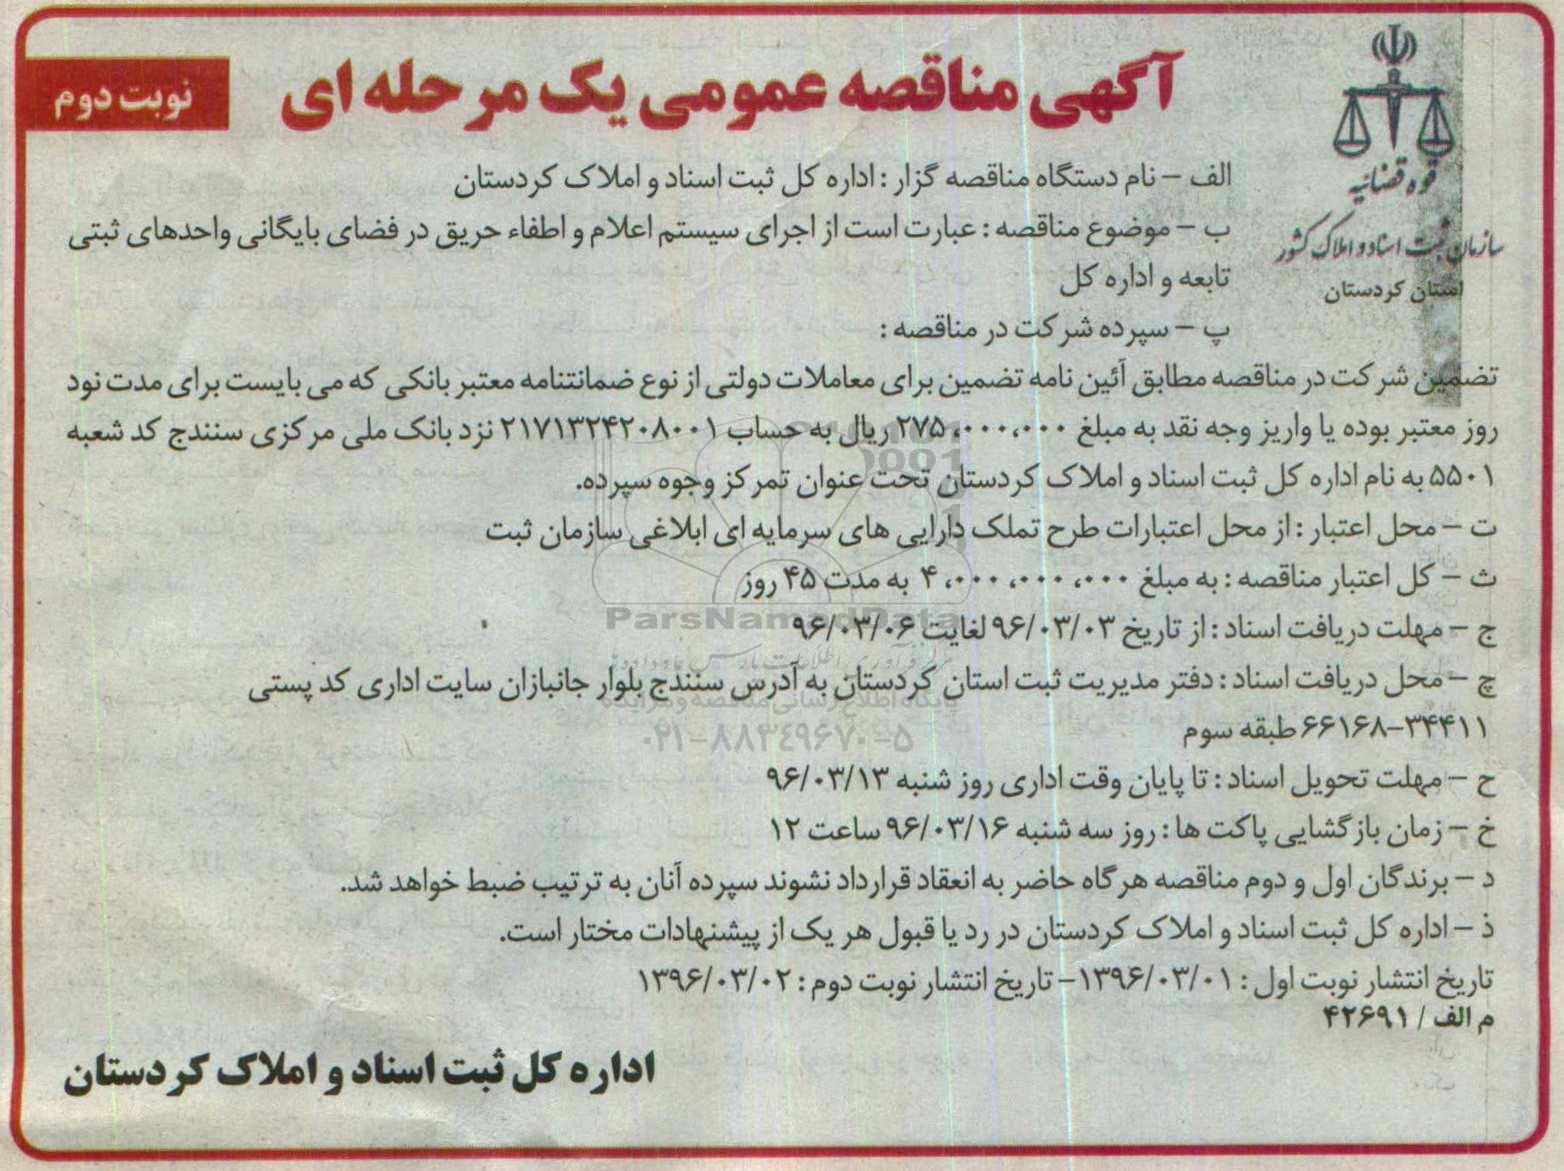 آگهی مناقصه عمومی یک مرحله ای
نوبت دوم
قوه قضائیه
سازمان ثبت اسناد و املاک کشور
استان کردستان
الف – نام دستگاه مناقصه گزار : اداره کل ثبت اسناد و املاک کردستان
ب – موضوع مناقصه : عبارت است از اجرای سیستم اعلام و اطفاء حریق در فضای بایگانی واحدهای ثبتی
تابعه و اداره کل
پ – سپرده شرکت در مناقصه :
تضمین شرکت در مناقصه مطابق آئین نامه تضمین برای معاملات دولتی از نوع ضمانتنامه معتبر بانکی که می بایست برای مدت نود
روز معتبر بوده یا واریز وجه نقد به مبلغ ۲۷۵،۰۰۰،۰۰۰ ریال به حساب ۲۱۷۱۳۲۴۲۰۸۰۰۱ نزد بانک ملی مرکزی سنندج کد شعبه
۵۵۰۱ به نام اداره کل ثبت اسناد و املاک کردستان تحت عنوان تمرکز وجوه سپرده.
ت – محل اعتبار : از محل اعتبارات طرح تملک دارایی های سرمایه ای ابلاغی سازمان ثبت
ث – کل اعتبار مناقصه : به مبلغ ۴،۰۰۰،۰۰۰،۰۰۰ به مدت ۴۵ روز
ج – مهلت دریافت اسناد : از تاریخ ۹۶/۰۳/۰۳ لغایت ۹۶/۰۳/۰۶
چ – محل دریافت اسناد : دفتر مدیریت ثبت استان کردستان به آدرس سنندج بلوار جانبازان سایت اداری کد پستی
۳۴۴۱۱-۶۶۱۶۸ طبقه سوم
ح – مهلت تحویل اسناد : تا پایان وقت اداری روز شنبه ۹۶/۰۳/۱۳
خ – زمان بازگشایی پاکت ها : روز سه شنبه ۹۶/۰۳/۱۶ ساعت ۱۲
د – برندگان اول و دوم مناقصه هرگاه حاضر به انعقاد قرارداد نشوند سپرده آنان به ترتیب ضبط خواهد شد.
ذ – اداره کل ثبت اسناد و املاک کردستان در رد یا قبول هر یک از پیشنهادات مختار است.
تاریخ انتشار نوبت اول : ۱۳۹۶/۰۳/۰۱ – تاریخ انتشار نوبت دوم : ۱۳۹۶/۰۳/۰۲
م الف / ۴۲۶۹۱
اداره کل ثبت اسناد و املاک کردستان
ParsNamadData
مرکز فرآوری اطلاعات پارس نماد داده ها
پایگاه اطلاع رسانی مناقصه و مزایده
۰۲۱-۸۸۳۴۹۶۷۰-۵